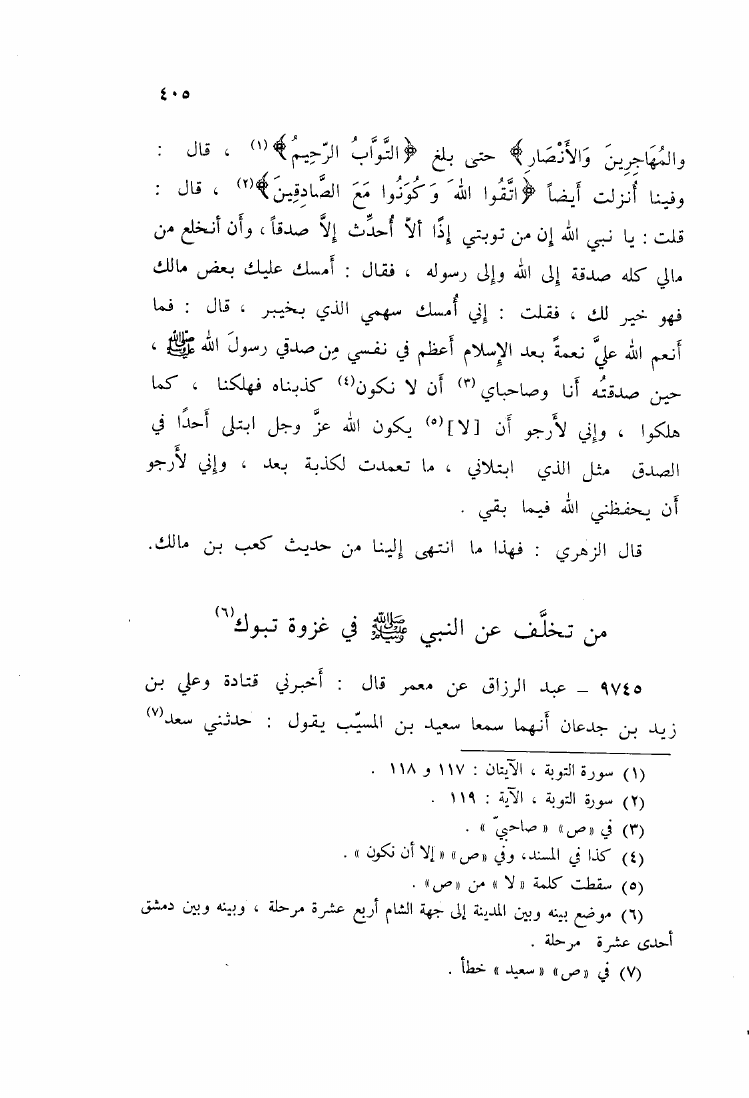 ٤٠٥
والمُهَاجِرِينَ وَالأَنْصَارِ﴾ حتى بلغ ﴿التَّوَّابُ الرَّحِيمُ﴾(١) ، قال :
وفينا أُنزلت أيضاً ﴿اتَّقُوا اللهَ وَكُونُوا مَعَ الصَّادِقِينَ﴾(٢) ، قال :
قلت : يا نبي الله إن من توبتي إذًا ألاّ أُحدِّث إلاَّ صدقاً ، وأن أنخلع من
مالي كله صدقة إلى الله وإلى رسوله ، فقال : أمسك عليك بعض مالك
فهو خير لك ، فقلت : إني أُمسك سهمي الذي بخيبر ، قال : فما
أنعم الله عليَّ نعمةً بعد الإسلام أعظم في نفسي مِن صدقي رسولَ الله ﷺ ،
حين صدقتُه أنا وصاحباي(٣) أن لا نكون(٤) كذبناه فهلكنا ، كما
هلكوا ، وإني لأرجو أن [لا](٥) يكون الله عزَّ وجل ابتلى أحدًا في
الصدق مثل الذي ابتلاني ، ما تعمدت لكذبة بعد ، وإني لأرجو
أن يحفظني الله فيما بقي .
قال الزهري : فهذا ما انتهى إلينا من حديث كعب بن مالك.
من تخلَّف عن النبي ﷺ في غزوة تبوك(٦)
٩٧٤٥ – عبد الرزاق عن معمر قال : أخبرني قتادة وعلي بن
زيد بن جدعان أنهما سمعا سعيد بن المسيّب يقول : حدثني سعد(٧)
(١) سورة التوبة ، الآيتان : ١١٧ و ١١٨ .
(٢) سورة التوبة ، الآية : ١١٩ .
(٣) في «ص» «صاحبيّ» .
(٤) كذا في المسند، وفي «ص» «إلا أن نكون» .
(٥) سقطت كلمة «لا» من «ص» .
(٦) موضع بينه وبين المدينة إلى جهة الشام أربع عشرة مرحلة ، وبينه وبين دمشق
أحدى عشرة مرحلة .
(٧) في «ص» «سعيد» خطأ .